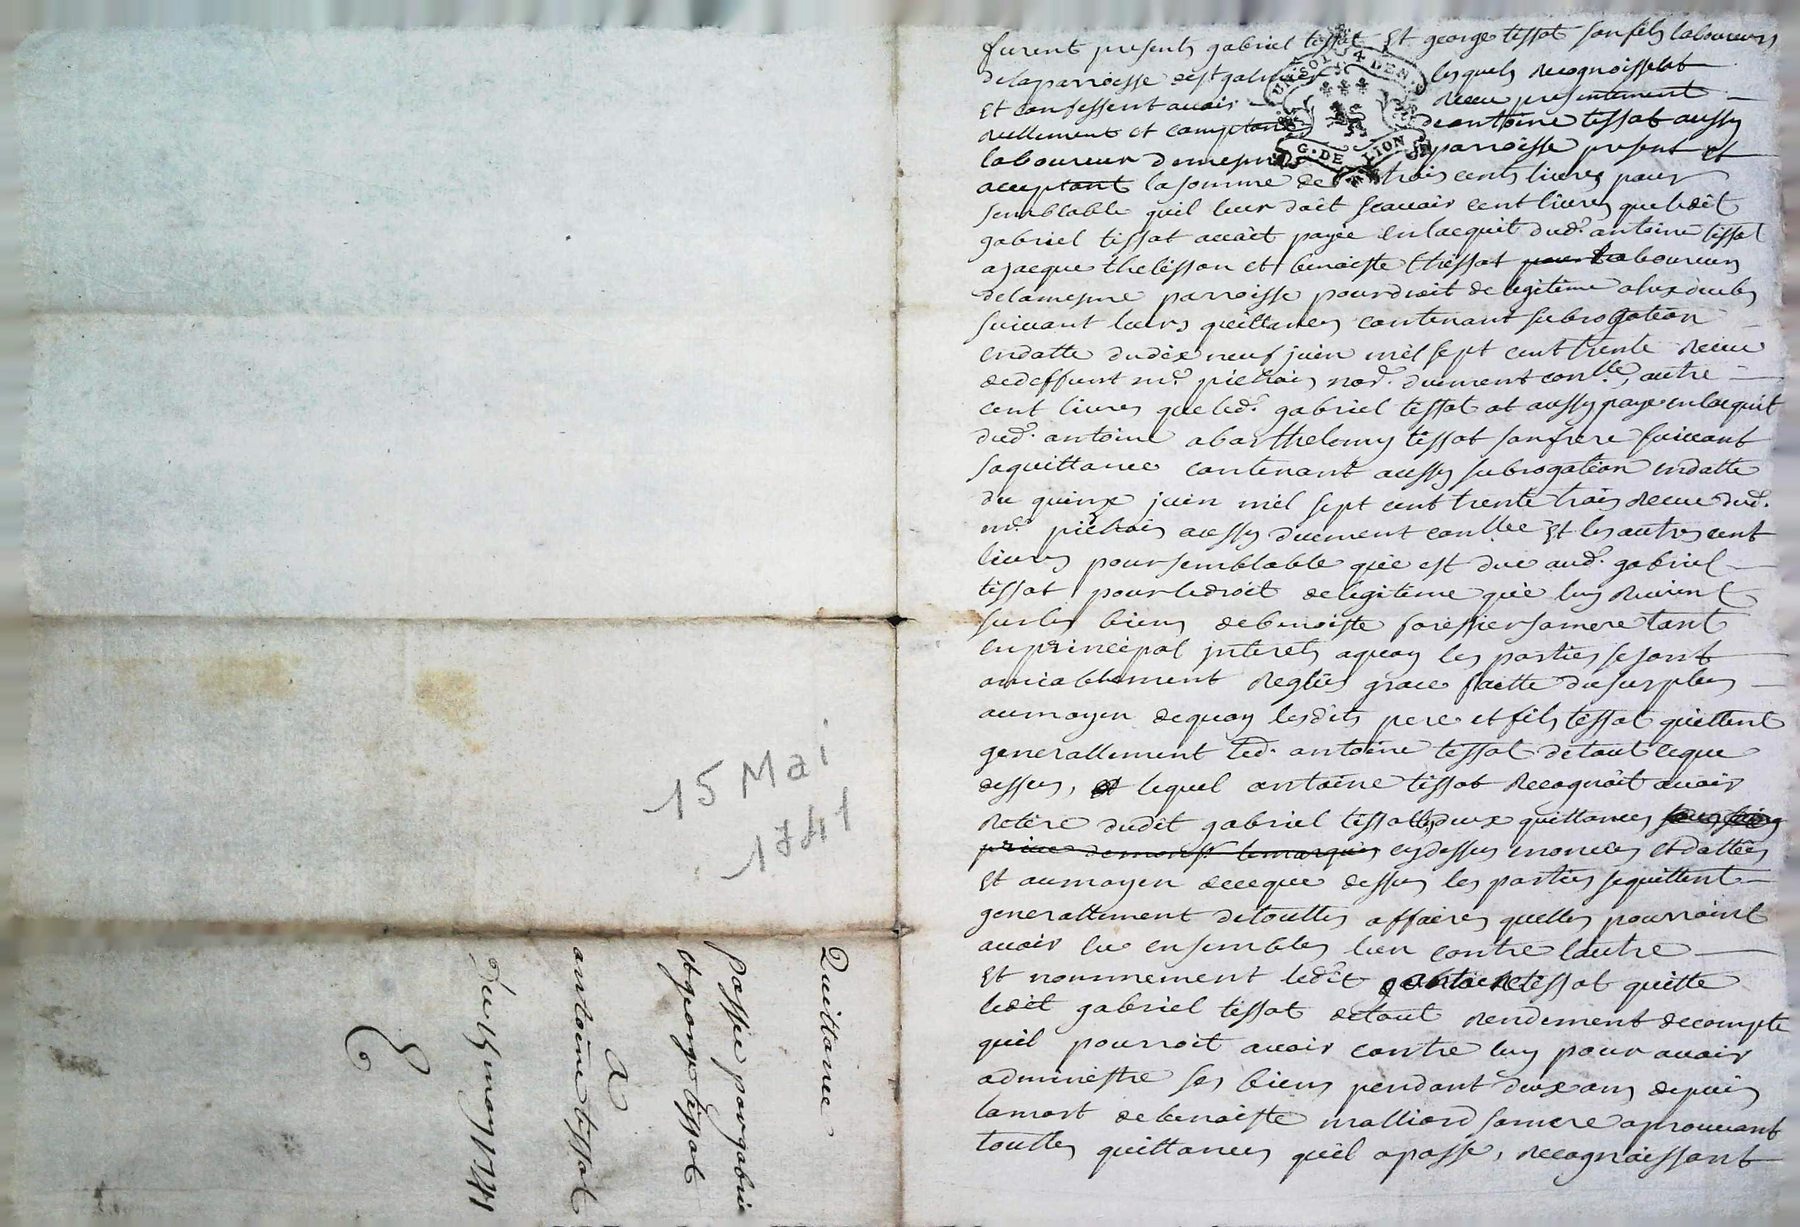 furent presents gabriel tissot Et george tissot son fils laboureurs
de la parroisse de st galmier lesquels recognoissent
et confessent avoir receu presentement
reellement et comptant de antoine tissot aussy
laboureur de mesme parroisse present et
acceptant la somme de trois cents livres pour
semblable quil leur doit scavoir cent livres que ledit
gabriel tissot avoit payée en lacquit dud. antoine tissot
a jacque et benoiste tissot laboureurs
de la mesme parroisse pour droit de legitime a eux deubs
suivant leurs quittances contenant subrogation
en datte du dix neuf juin mil sept cent trente receue
de deffunt me. not. duement conllée, autre
cent livres que led. gabriel tissot at aussy payé en lacquit
dud. antoine a barthelemy tissot son frere suivant
sa quittance contenant aussy subrogation en datte
du quinze juin mil sept cent trente trois receue dud.
me. aussy duement conllée Et les autres cent
livres pour semblable qui est due aud. gabriel
tissot pour le droit de legitime qui luy revient
sur les biens de benoiste sa mere tant
en principal jnterets a quoy les parties se sont
amicablement reglées grace faitte du surplus
au moyen de quoy lesdits pere et fils tissot quittent
generallement led. antoine tissot de tout ce que
dessus, et lequel antoine tissot recognoit avoir
retiré dudit gabriel tissot les deux quittances
cy dessus enoncées et dattées
Et au moyen de ce que dessus les parties se quittent
generallement de touttes affaires quelles pourroint
avoir eu ensembles lun contre lautre
Et nommement ledit antoine tissot quitte
ledit gabriel tissot de tout rendement de compte
quil pourroit avoir contre luy pour avoir
administré ses biens pendant deux ans depuis
la mort de benoiste malliard sa mere aprouvant
touttes quittances quil a passé, recognoissant
UN SOL 4 DEN.
G. DE LION
15 Mai
1741
Quittance
passée par gabriel
et george tissot
a
antoine tissot
Du 15 may 1741